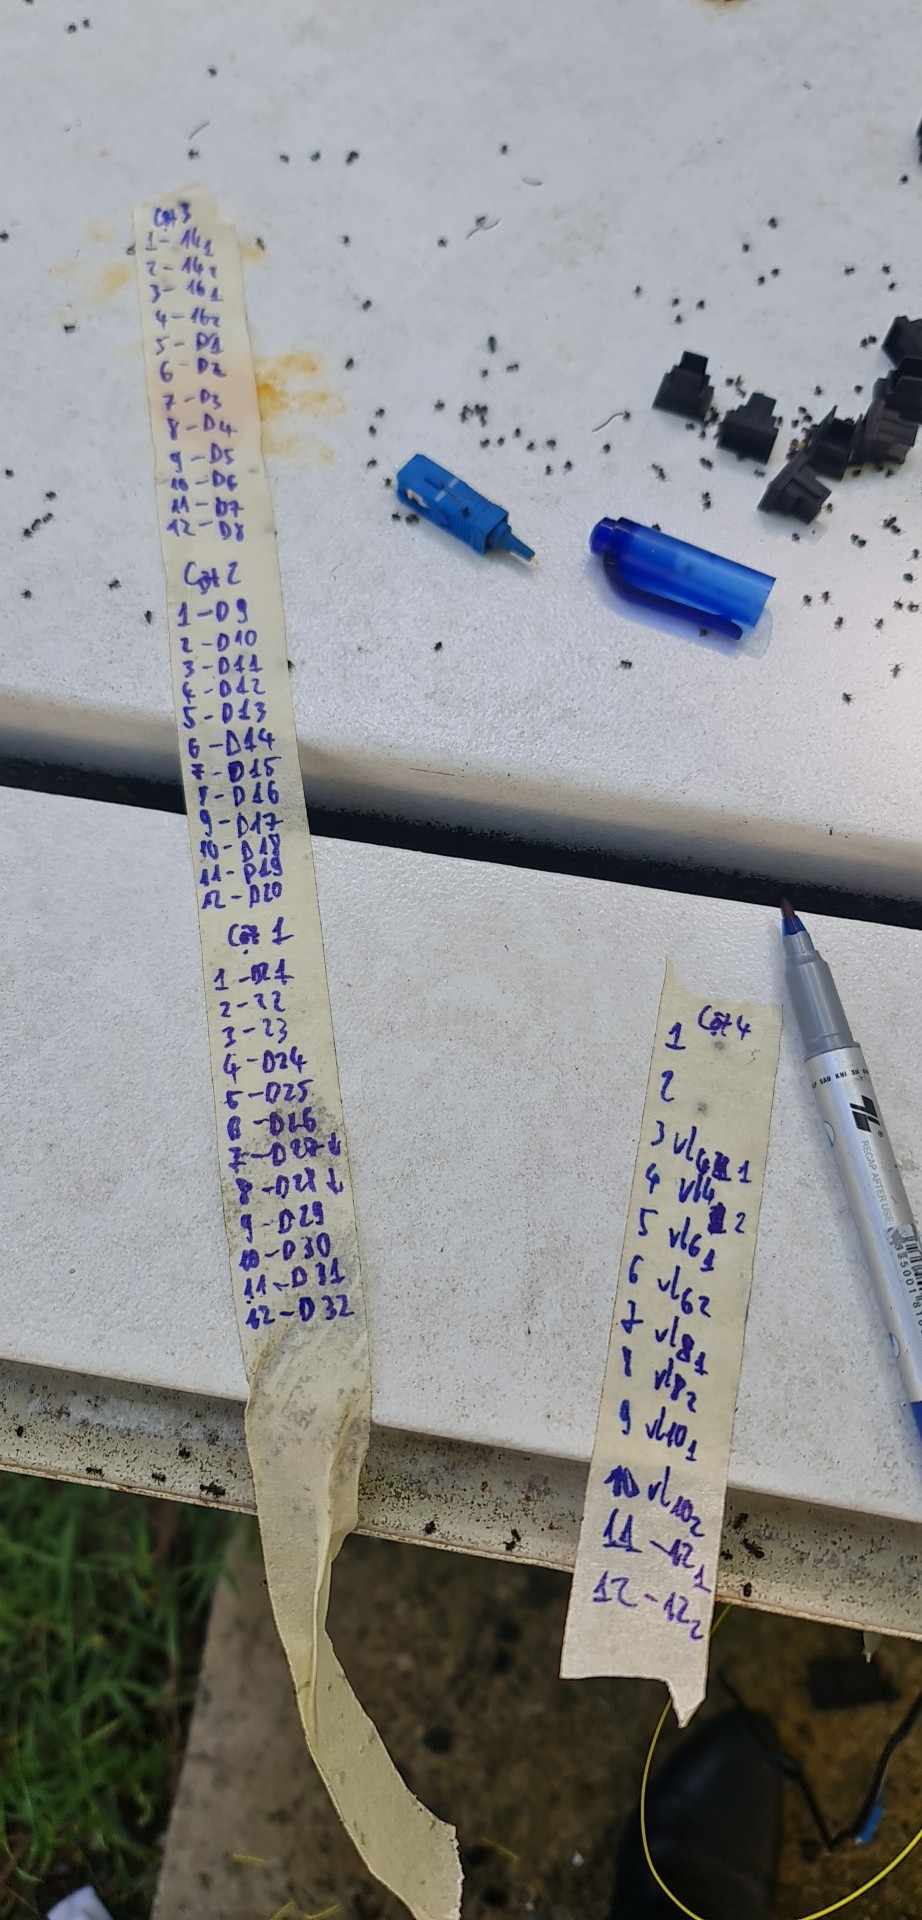 Cột 3
1 - 14 1
2 - 14 2
3 - 16 1
4 - 16 2
5 - D1
6 - D2
7 - D3
8 - D4
9 - D5
10 - D6
11 - D7
12 - D8
Cột 2
1 - D9
2 - D10
3 - D11
4 - D12
5 - D13
6 - D14
7 - D15
8 - D16
9 - D17
10 - D18
11 - D19
12 - D20
Cột 1
1 - D21
2 - 22
3 - 23
4 - D24
5 - D25
6 - D26
7 - D27 ↓
8 - D28 ↓
9 - D29
10 - D30
11 - D31
12 - D32
Cột 4
1
2
3 vl4 1
4 vl4 2
5 vl6 1
6 vl6 2
7 vl8 1
8 vl8 2
9 vl10 1
10 vl10 2
11 - 12 1
12 - 12 2
SAU KHI
TL
RECAP AFTER USE